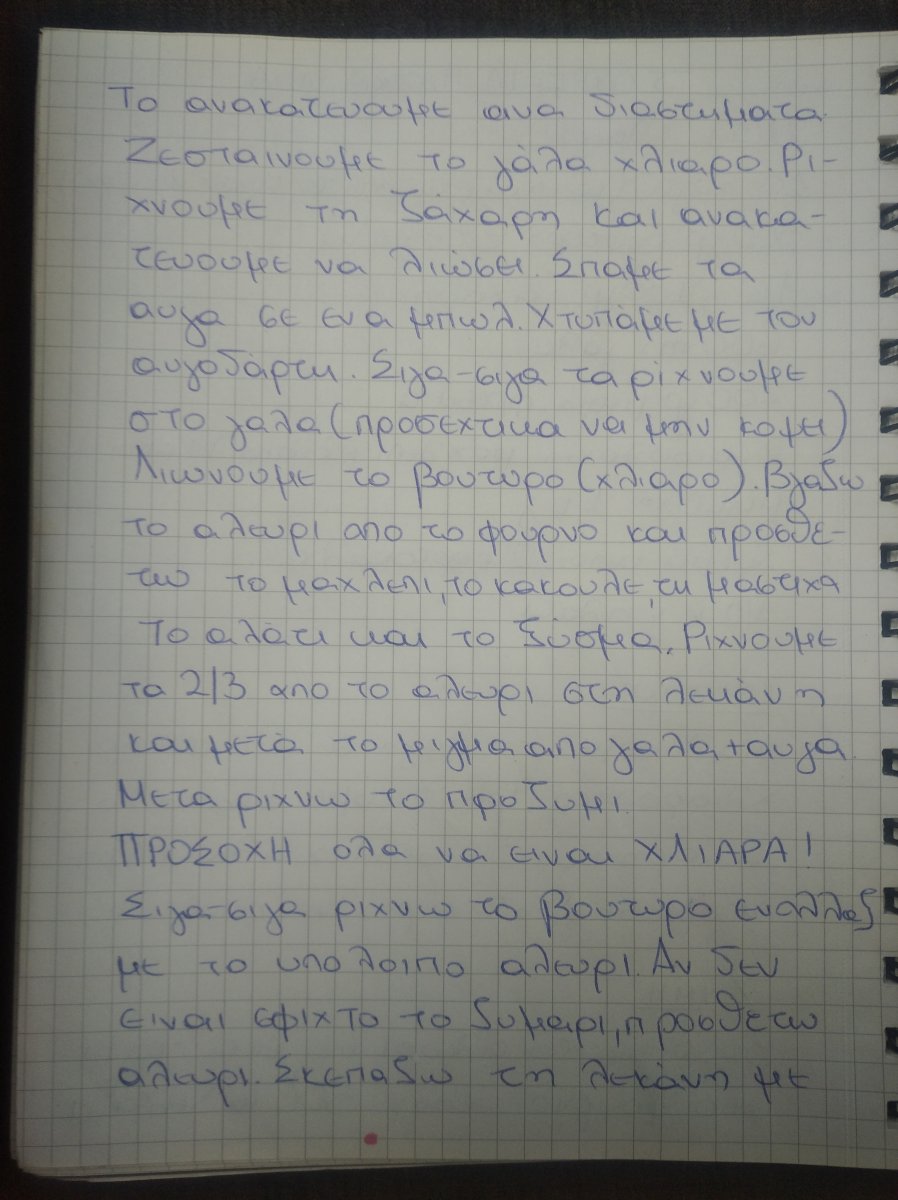 Το ανακατευουμε ανα διαστηματα.
Ζεσταινουμε το γάλα χλιαρο. Ρι-
χνουμε τη ζάχαρη και ανακα-
τευουμε να λιώσει. Σπαμε τα
αυγα σε ενα μπωλ. Χτυπάμε με τον
αυγοδάρτη. Σιγα-σιγα τα ρίχνουμε
στο γαλα (προσεχτικα να μην κοψει)
Λιωνουμε το βουτυρο (χλιαρο). Βγαζω
το αλευρι απο το φουρνο και προσθε-
τω το μαχλεπι, το κακουλε, τη μαστιχα
το αλάτι και το ξύσμα. Ριχνουμε
τα 2/3 απο το αλευρι στη λεκάνη
και μετά το μιγμα απο γαλα + αυγα.
Μετα ριχνω το προζυμι.
ΠΡΟΣΟΧΗ ολα να ειναι ΧΛΙΑΡΑ!
Σιγα-σιγα ριχνω το βουτυρο εναλλαξ
με το υπολοιπο αλευρι. Αν δεν
ειναι εφιχτο το ζυμαρι, προσθετω
αλευρι. Σκεπαζω τη λεκάνη με